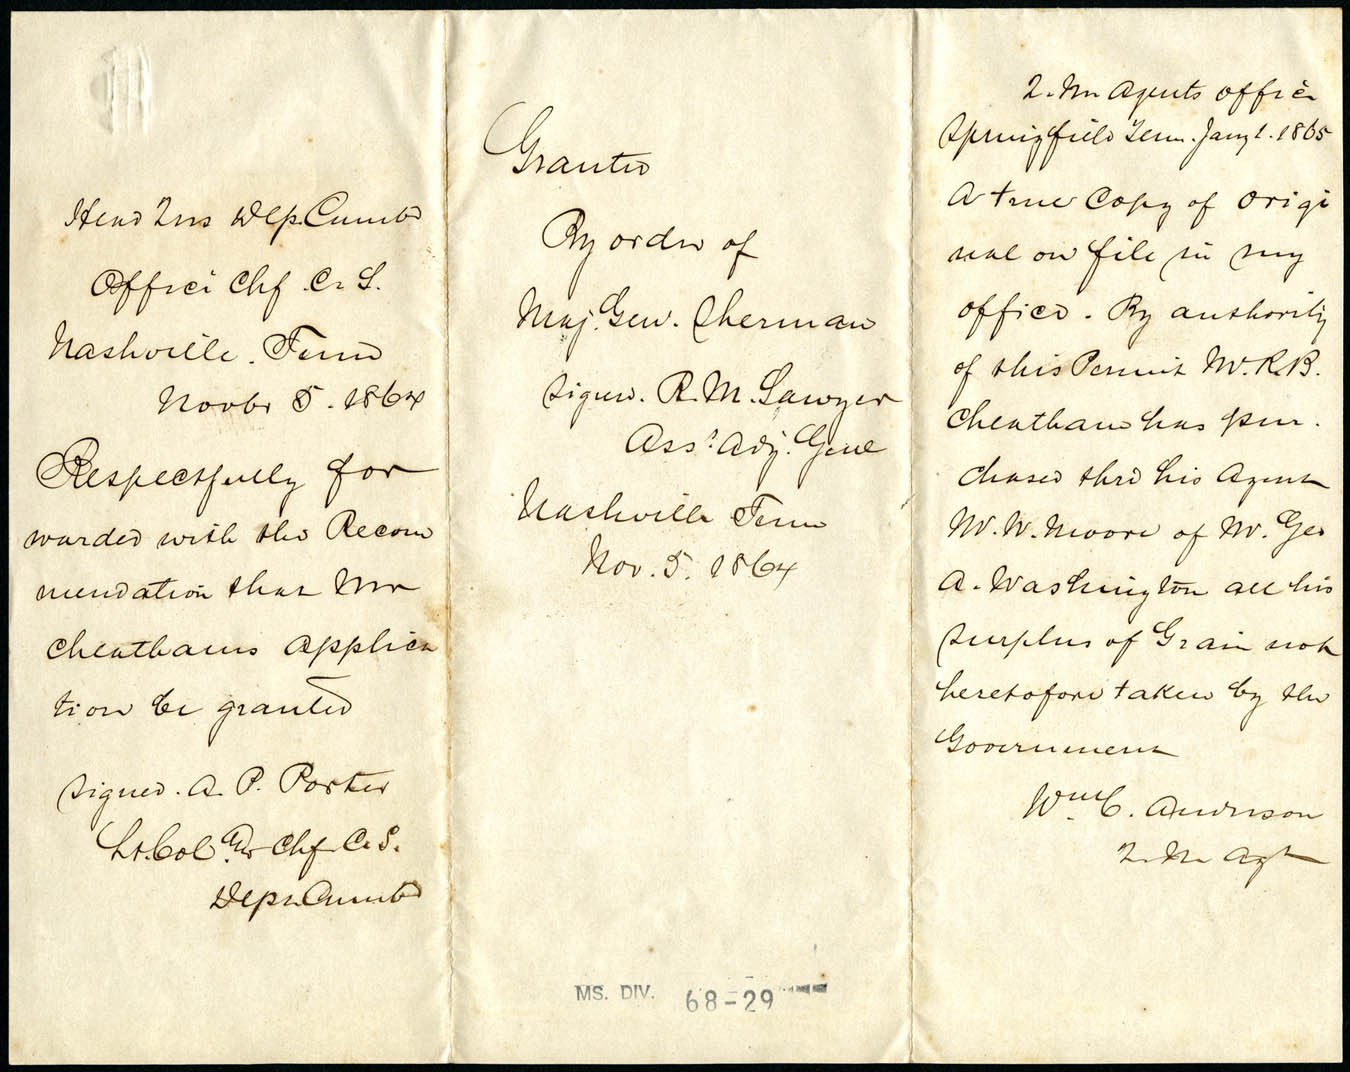 Head Qrs Dep. Cumbd
Office Chf. C. S.
Nashville. Tenn
Novbr 5. 1864
Respectfully for
warded with the Recom
mendation that Mr
Cheathams applica
tion be granted
Signed. A. P. Porter
Lt. Col & Chf. C. S.
Dept. Cumbd
Granted
By order of
Maj. Gen. Sherman
Signed. R. M. Sawyer
Asst. Adj. Genl
Nashville Tenn
Nov. 5. 1864
MS. DIV. 68-29
Q. M. Agents office
Springfield Tenn. Jany 1. 1865
A true Copy of origi
nal on file in my
office. By authority
of this Permit W. R. B.
Cheatham has pur.
chased thro his Agent
W. W. Moore of Mr. Geo
A. Washington all his
Surplus of Grain not
heretofore taken by the
Government
Wm C. Anderson
Q. M. Agt